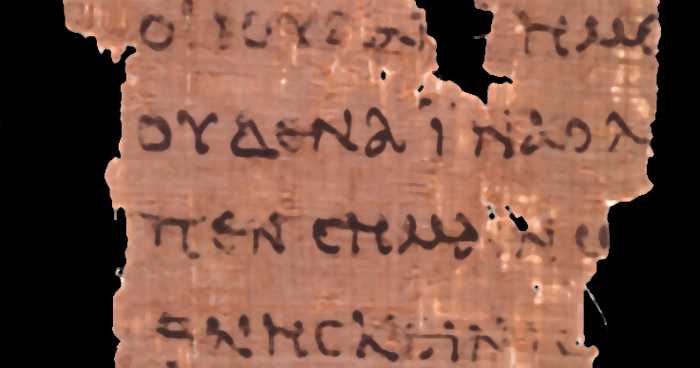 ΟΙ ΙΟΥΔΑΙ ΗΜΙ
ΟΥΔΕΝΑ ΪΝΑ Ο Λ
ΠΕΝ ΣΗΜΑΙΝΩ
ΘΝΗΣΚΕΙΝ